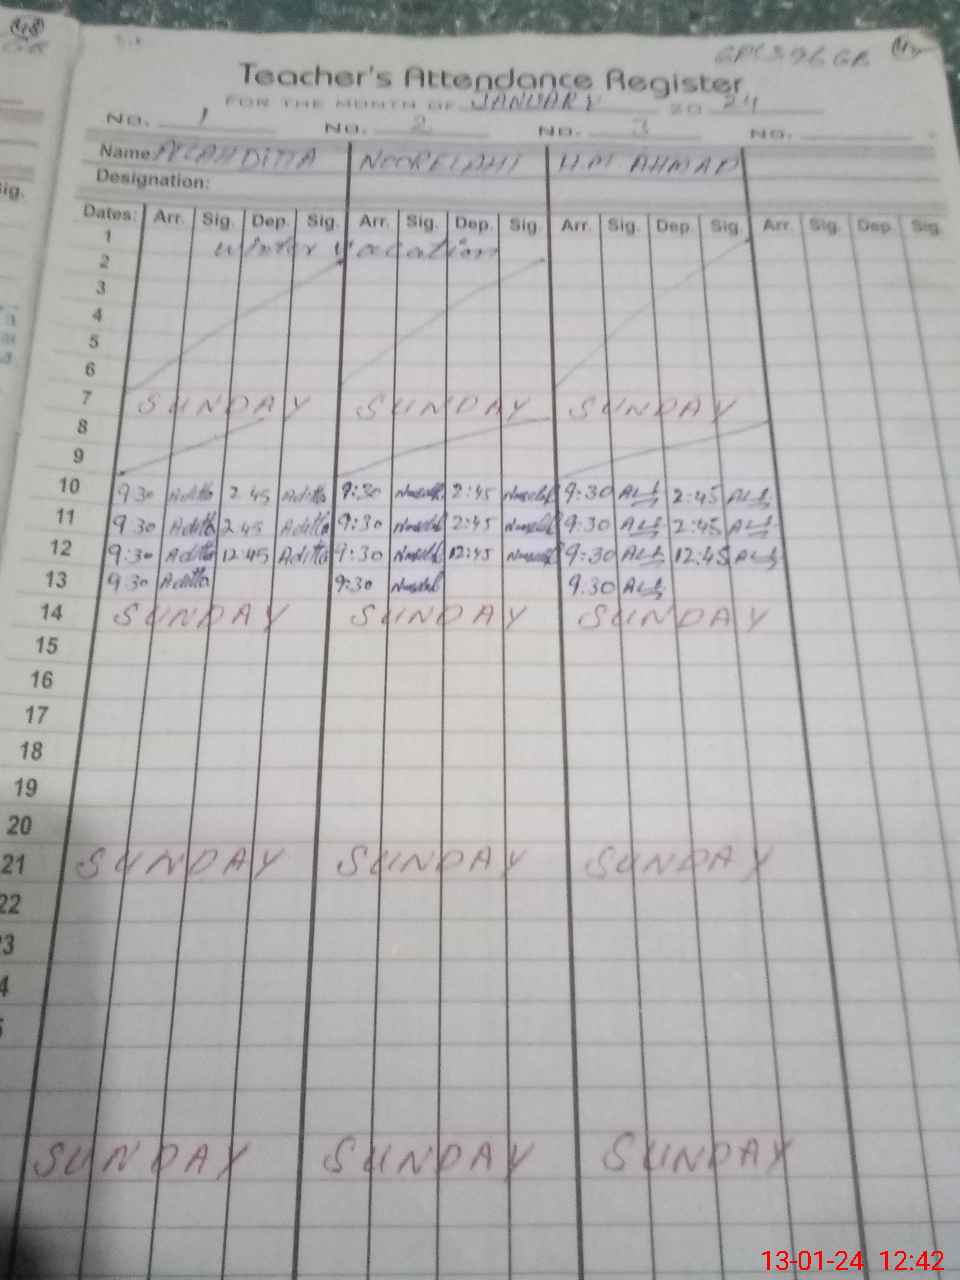 Teacher's Attendance Register
FOR THE MONTH OF JANUARY 20 24
NO. 1 NO. 2 NO. 3 NO.
Name: NOOR ELAHI H.M AHMAD
Designation:
Dates: Arr. Sig. Dep. Sig. Arr. Sig. Dep. Sig. Arr. Sig. Dep. Sig. Arr. Sig. Dep. Sig.
1 winter vacation
2
3
4
5
6
7 SUNDAY SUNDAY SUNDAY
8
9
10 9 30 Aditta 2 45 Aditta 9:30 2:45 9:30 2:45
11 9 30 Aditta 2 45 Aditta 9:30 2:45 9:30 2:45
12 9:30 Aditta 12:45 Aditta 9:30 12:45 9:30 12:45
13 9 30 Aditta 9:30 9.30
14 SUNDAY SUNDAY SUNDAY
15
16
17
18
19
20
21 SUNDAY SUNDAY SUNDAY
22
SUNDAY SUNDAY SUNDAY
13-01-24 12:42